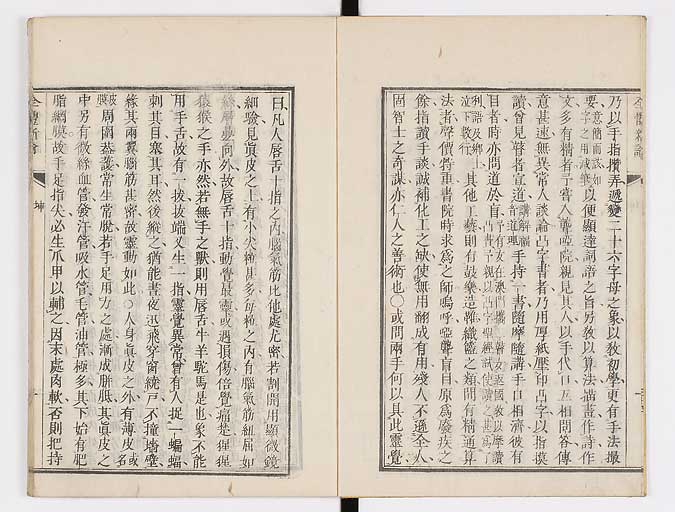 乃以手指攢弄遞變二十六字母之象以敎初學更有手法撮
要意簡而該如字之用減筆以便顯達詞語之旨另敎以算法描畫作詩作
文多有精者予嘗入聾啞院親見其人以手代口互相問答傳
意甚速無異常人談論凸字書者乃用厚紙壓印凸字以指摸
讀曾見瞽者宣道講解福音道理手持一書隨摩隨講手口相濟彼有
目者時亦問道於盲
其他工藝則有鼓樂造鞋織籃之類間有精通算
法者聲價特重書院時求爲之師嗚呼啞聾盲目原爲廢疾之
餘指讀手談誠補化工之缺使無用翻成有用殘人不遜全人
固智士之奇謀亦仁人之善術也○或問兩手何以具此靈覺
全體新論
曰凡人唇舌十指之內腦氣筋比他處尤密若割開用顯微鏡
細驗見眞皮之上有小尖粒甚多每粒之內有腦氣筋紐屈如
絲層疊向外故唇舌十指動覺最靈或遇損傷倍覺痛楚猩猩
猿猴之手亦然若無手之獸則用唇舌牛羊駝馬是也象不能
用手舌故有一拔拔端又生一指靈覺異常曾有人捉一蝙蝠
刺其目塞其耳然後縱之猶能晝夜迅飛穿窗繞戶不撞墻壁
緣其兩翼腦筋甚密故靈動如此○人身眞皮之外有薄皮名或
周圍蓋護常生常脫若手足用力之處漸成胼胝其眞皮之
中另有微絲血管發汗管吸水管毛管油管極多其下始有肥
脂網膜故手足指尖必生爪甲以輔之因末處肉軟否則把持
全體新論
坤